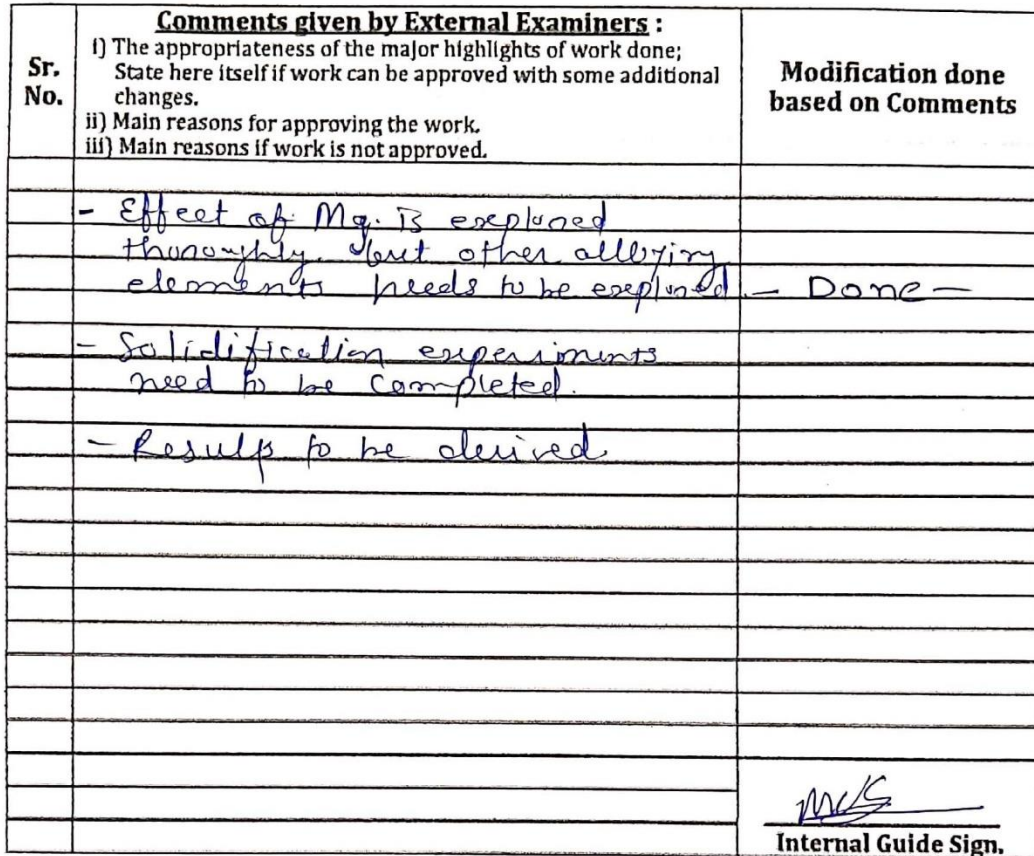 Sr.
No.
Comments given by External Examiners :
i) The appropriateness of the major highlights of work done;
State here itself if work can be approved with some additional
changes.
ii) Main reasons for approving the work.
iii) Main reasons if work is not approved.
Modification done
based on Comments
- Effect of Mg. is explored
thoroughly. but other alloying
elements needs to be explored - Done -
- Solidification experiments
need to be completed.
- Results to be derived
Internal Guide Sign.